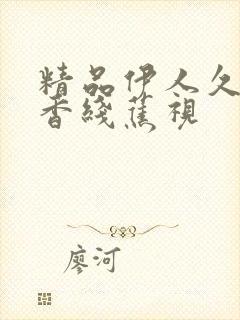 精品伊人久
香綫蕉視
廖河